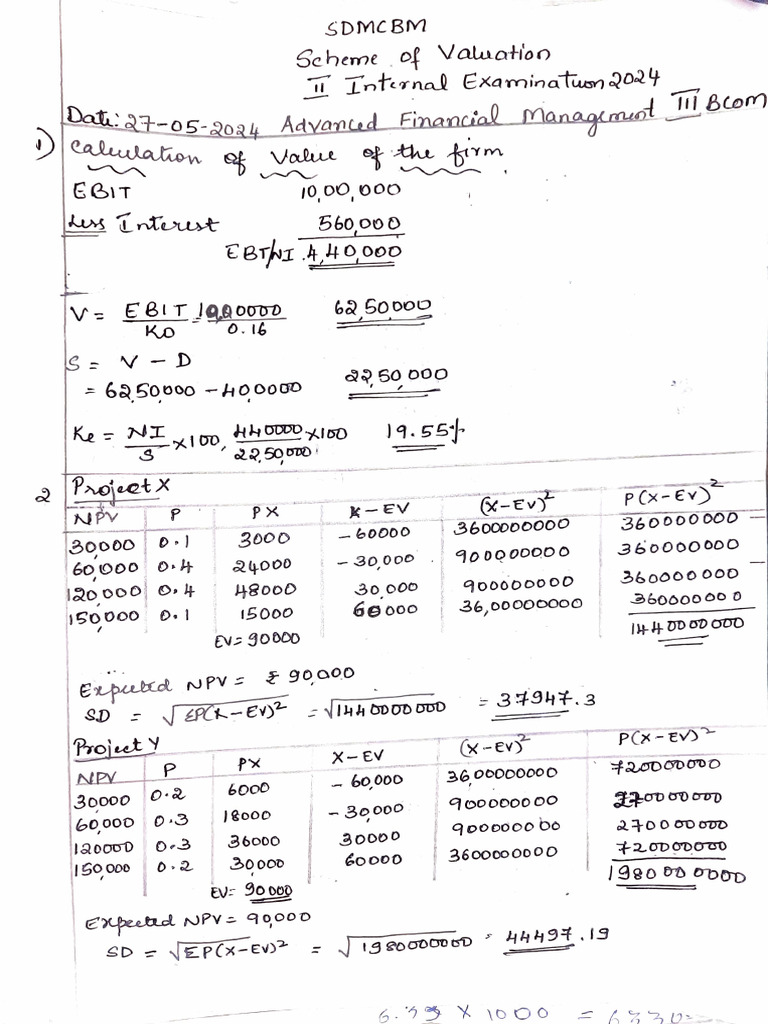 SDMCBM
Scheme of Valuation
II Internal Examination 2024
Date: 27-05-2024 Advanced Financial Management III BCom
1) Calculation of Value of the firm
EBIT 10,00,000
Less Interest 560,000
EBT/NI 4,40,000
V = EBIT/KO = 1000000/0.16 62,50,000
S = V - D
= 62,50,000 - 40,0000 22,50,000
Ke = NI/S x100, 440000/22,50,000 x100 19.55%
2 Project X
NPV P PX X-EV (X-EV)² P(X-EV)²
30,000 0.1 3000 -60000 3600000000 360000000
60,000 0.4 24000 -30,000 900000000 360000000
120,000 0.4 48000 30,000 900000000 360000000
150,000 0.1 15000 60000 36,00000000 360000000
EV= 90000 1440000000
Expected NPV = ₹ 90,000
SD = √ΣP(X-EV)² = √1440000000 = 37947.3
Project Y
NPV P PX X-EV (X-EV)² P(X-EV)²
30000 0.2 6000 -60,000 36,00000000 720000000
60,000 0.3 18000 -30,000 900000000 270000000
120000 0.3 36000 30000 900000000 270000000
150,000 0.2 30,000 60000 3600000000 720000000
EV= 90000 1980000000
Expected NPV = 90,000
SD = √ΣP(X-EV)² = √1980000000 = 44497.19
x 1000 =